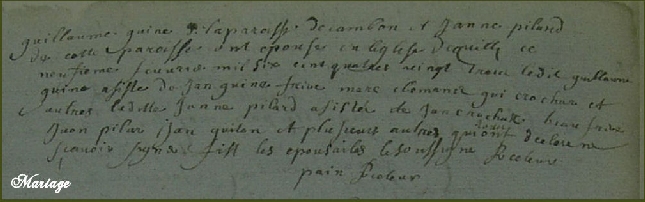 guillaume guine de la paroisse de cambon et Janne pilard
de cette paroisse ont epousé en leglise de quilly ce
neufieme feuvrie mil six cent quatres vingt traize ledit guillaume
guine asisste de Jan guine frere merc clemance qui crochar et
autres ladite Janne pilard asistée de Jan crochar beau frere
Juan pilar Jan guiton et plusieurs autres qui ont declore ne
scavoir signe fist les epousailes le soussigne Recteur
pain Recteur
Mariage